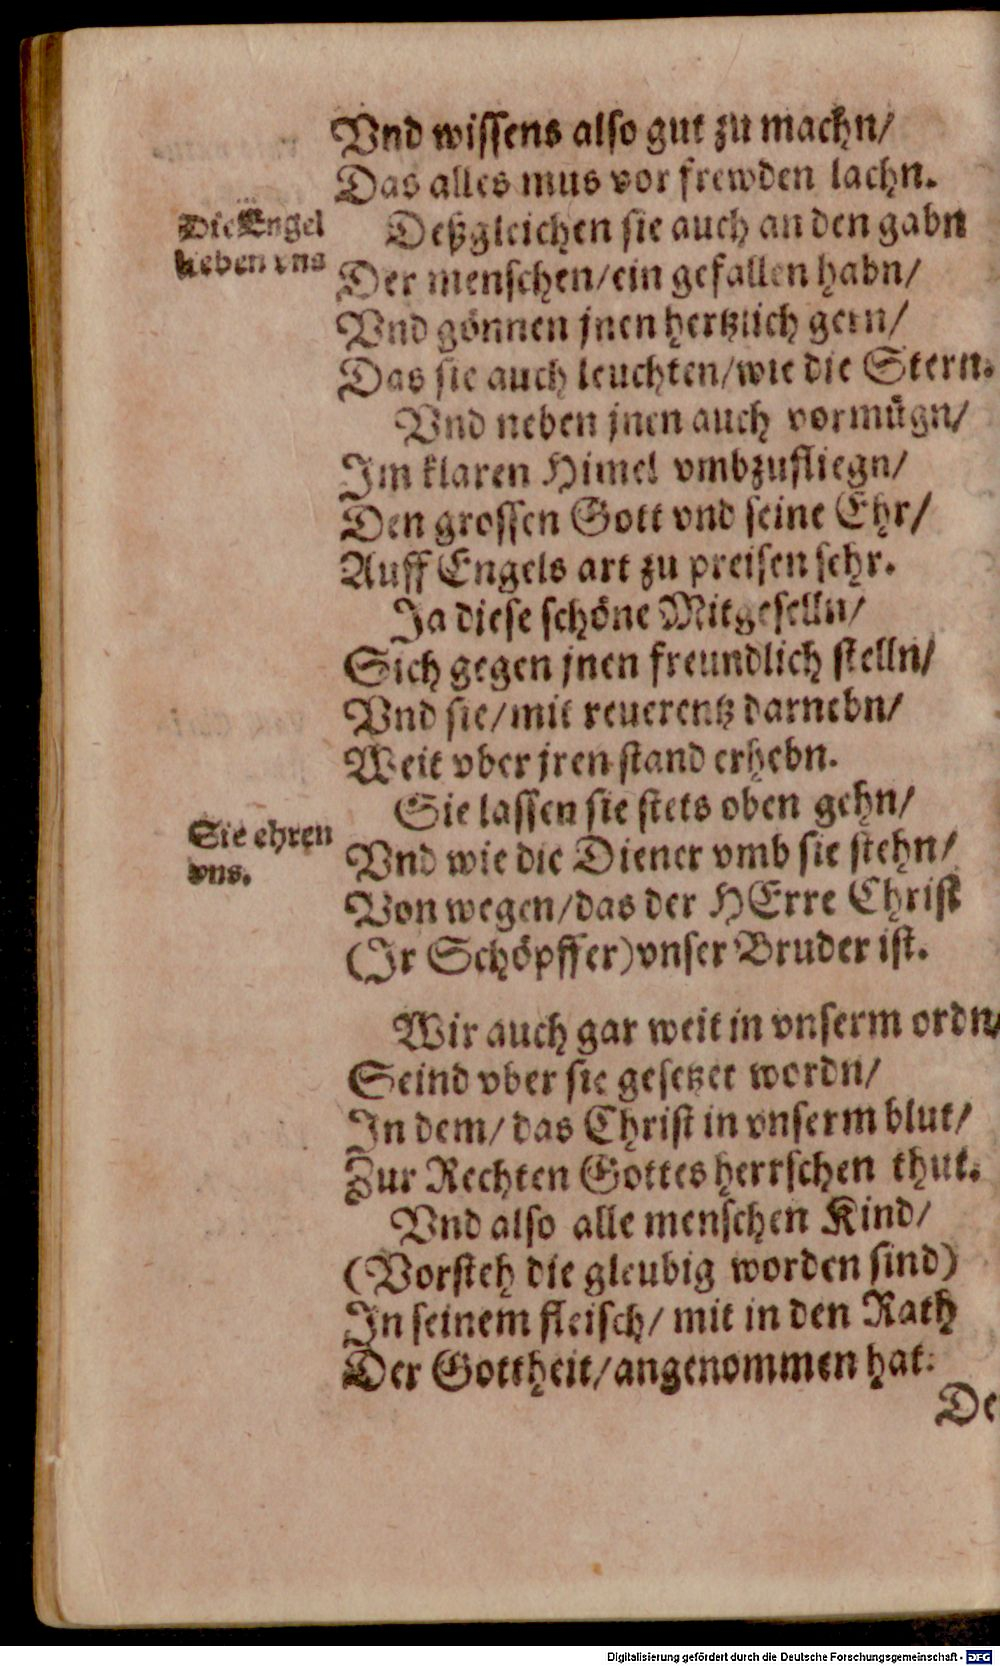 Vnd wissens also gut zu machn/
Das alles mus vor frewden lachn.
Die Engel
lieben vns
Deßgleichen sie auch an den gabn
Der menschen/ein gefallen habn/
Vnd gönnen jnen hertzlich gern/
Das sie auch leuchten/wie die Stern.
Vnd neben jnen auch vormügn/
Im klaren Himel vmbzufliegn/
Den grossen Gott vnd seine Ehr/
Auff Engels art zu preisen sehr.
Ja diese schöne Mitgeselln/
Sich gegen jnen freundlich stelln/
Vnd sie/mit reuerentz darnebn/
Weit vber jren stand erhebn.
Sie ehren
vns.
Sie lassen sie stets oben gehn/
Vnd wie die Diener vmb sie stehn/
Von wegen/das der HErre Christ
(Jr Schöpffer) vnser Bruder ist.
Wir auch gar weit in vnserm ordn/
Seind vber sie gesetzet wordn/
In dem/das Christ in vnserm blut/
Zur Rechten Gottes herrschen thut.
Vnd also alle menschen Kind/
(Vorsteh die gleubig worden sind)
In seinem fleisch/mit in den Rath
Der Gottheit/angenommen hat.
De
Digitalisierung gefördert durch die Deutsche Forschungsgemeinschaft - DFG